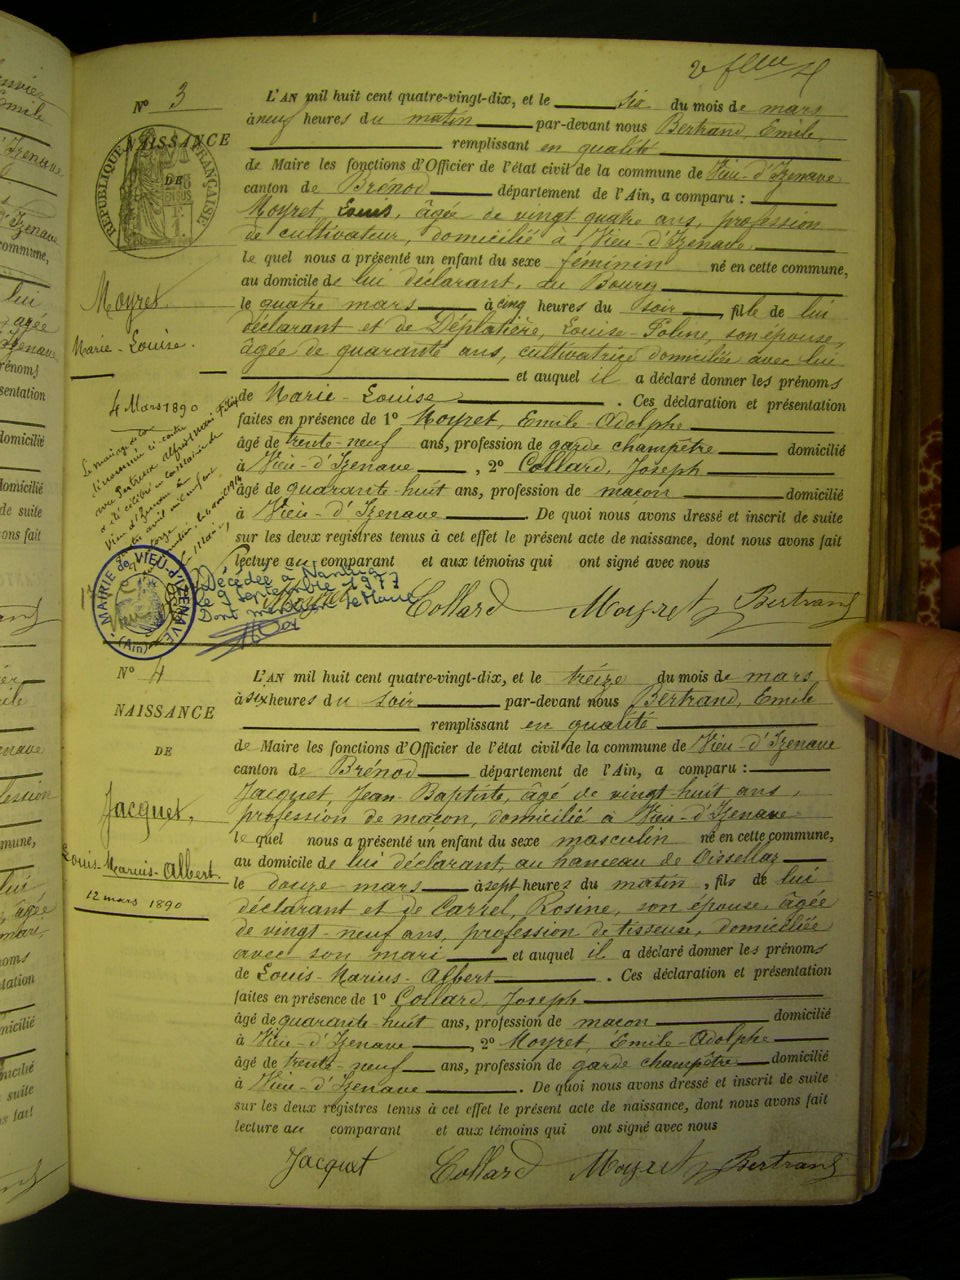 N° 3
NAISSANCE
DE
RÉPUBLIQUE FRANÇAISE
Moyret
Marie-Louise.
4 Mars 1890
L'AN mil huit cent quatre-vingt-dix, et le six du mois de mars
à neuf heures du matin par-devant nous Bertrand, Emile
remplissant en qualité
de Maire les fonctions d'Officier de l'état civil de la commune de Vieu-d'Izenave
canton de Brénod département de l'Ain, a comparu :
Moyret Louis, âgée de vingt quatre ans, profession
de cultivateur, domicilié à Vieu-d'Izenave
le quel nous a présenté un enfant du sexe féminin né en cette commune,
au domicile de lui déclarant, au Bourg
le quatre mars à cinq heures du soir, fille de lui
déclarant et de Déplatière, Louise son épouse,
âgée de quarante ans, cultivatrice domiciliée avec lui
et auquel il a déclaré donner les prénoms
de Marie-Louise. Ces déclaration et présentation
faites en présence de 1° Moyret, Emile-Adolphe
âgé de trente-neuf ans, profession de garde champêtre domicilié
à Vieu-d'Izenave, 2° Collard, Joseph
âgé de quarante-huit ans, profession de maçon domicilié
à Vieu-d'Izenave. De quoi nous avons dressé et inscrit de suite
sur les deux registres tenus à cet effet le présent acte de naissance, dont nous avons fait
lecture au comparant et aux témoins qui ont signé avec nous
MAIRIE de VIEU-d'IZENAVE (Ain)
Décédée à Nantua
le 9 septembre 1977
Dont mention le Maire
Collard Moyret Bertrand
N° 4
NAISSANCE
DE
Jacquet,
Louis-Marius-Albert.
12 mars 1890
L'AN mil huit cent quatre-vingt-dix, et le treize du mois de mars
à six heures du soir par-devant nous Bertrand, Emile
remplissant en qualité
de Maire les fonctions d'Officier de l'état civil de la commune de Vieu-d'Izenave
canton de Brénod département de l'Ain, a comparu :
Jacquet, Jean-Baptiste, âgé de vingt-huit ans,
profession de maçon, domicilié à Vieu-d'Izenave
le quel nous a présenté un enfant du sexe masculin né en cette commune,
au domicile de lui déclarant, au hameau de Oisellaz
le douze mars à sept heures du matin, fils de lui
déclarant et de Carrel, Rosine, son épouse, âgée
de vingt-neuf ans, profession de tisseuse, domiciliée
avec son mari et auquel il a déclaré donner les prénoms
de Louis-Marius-Albert. Ces déclaration et présentation
faites en présence de 1° Collard, Joseph
âgé de quarante-huit ans, profession de maçon domicilié
à Vieu-d'Izenave, 2° Moyret, Emile-Adolphe
âgé de trente-neuf ans, profession de garde champêtre domicilié
à Vieu-d'Izenave. De quoi nous avons dressé et inscrit de suite
sur les deux registres tenus à cet effet le présent acte de naissance, dont nous avons fait
lecture au comparant et aux témoins qui ont signé avec nous
Jacquet Collard Moyret Bertrand